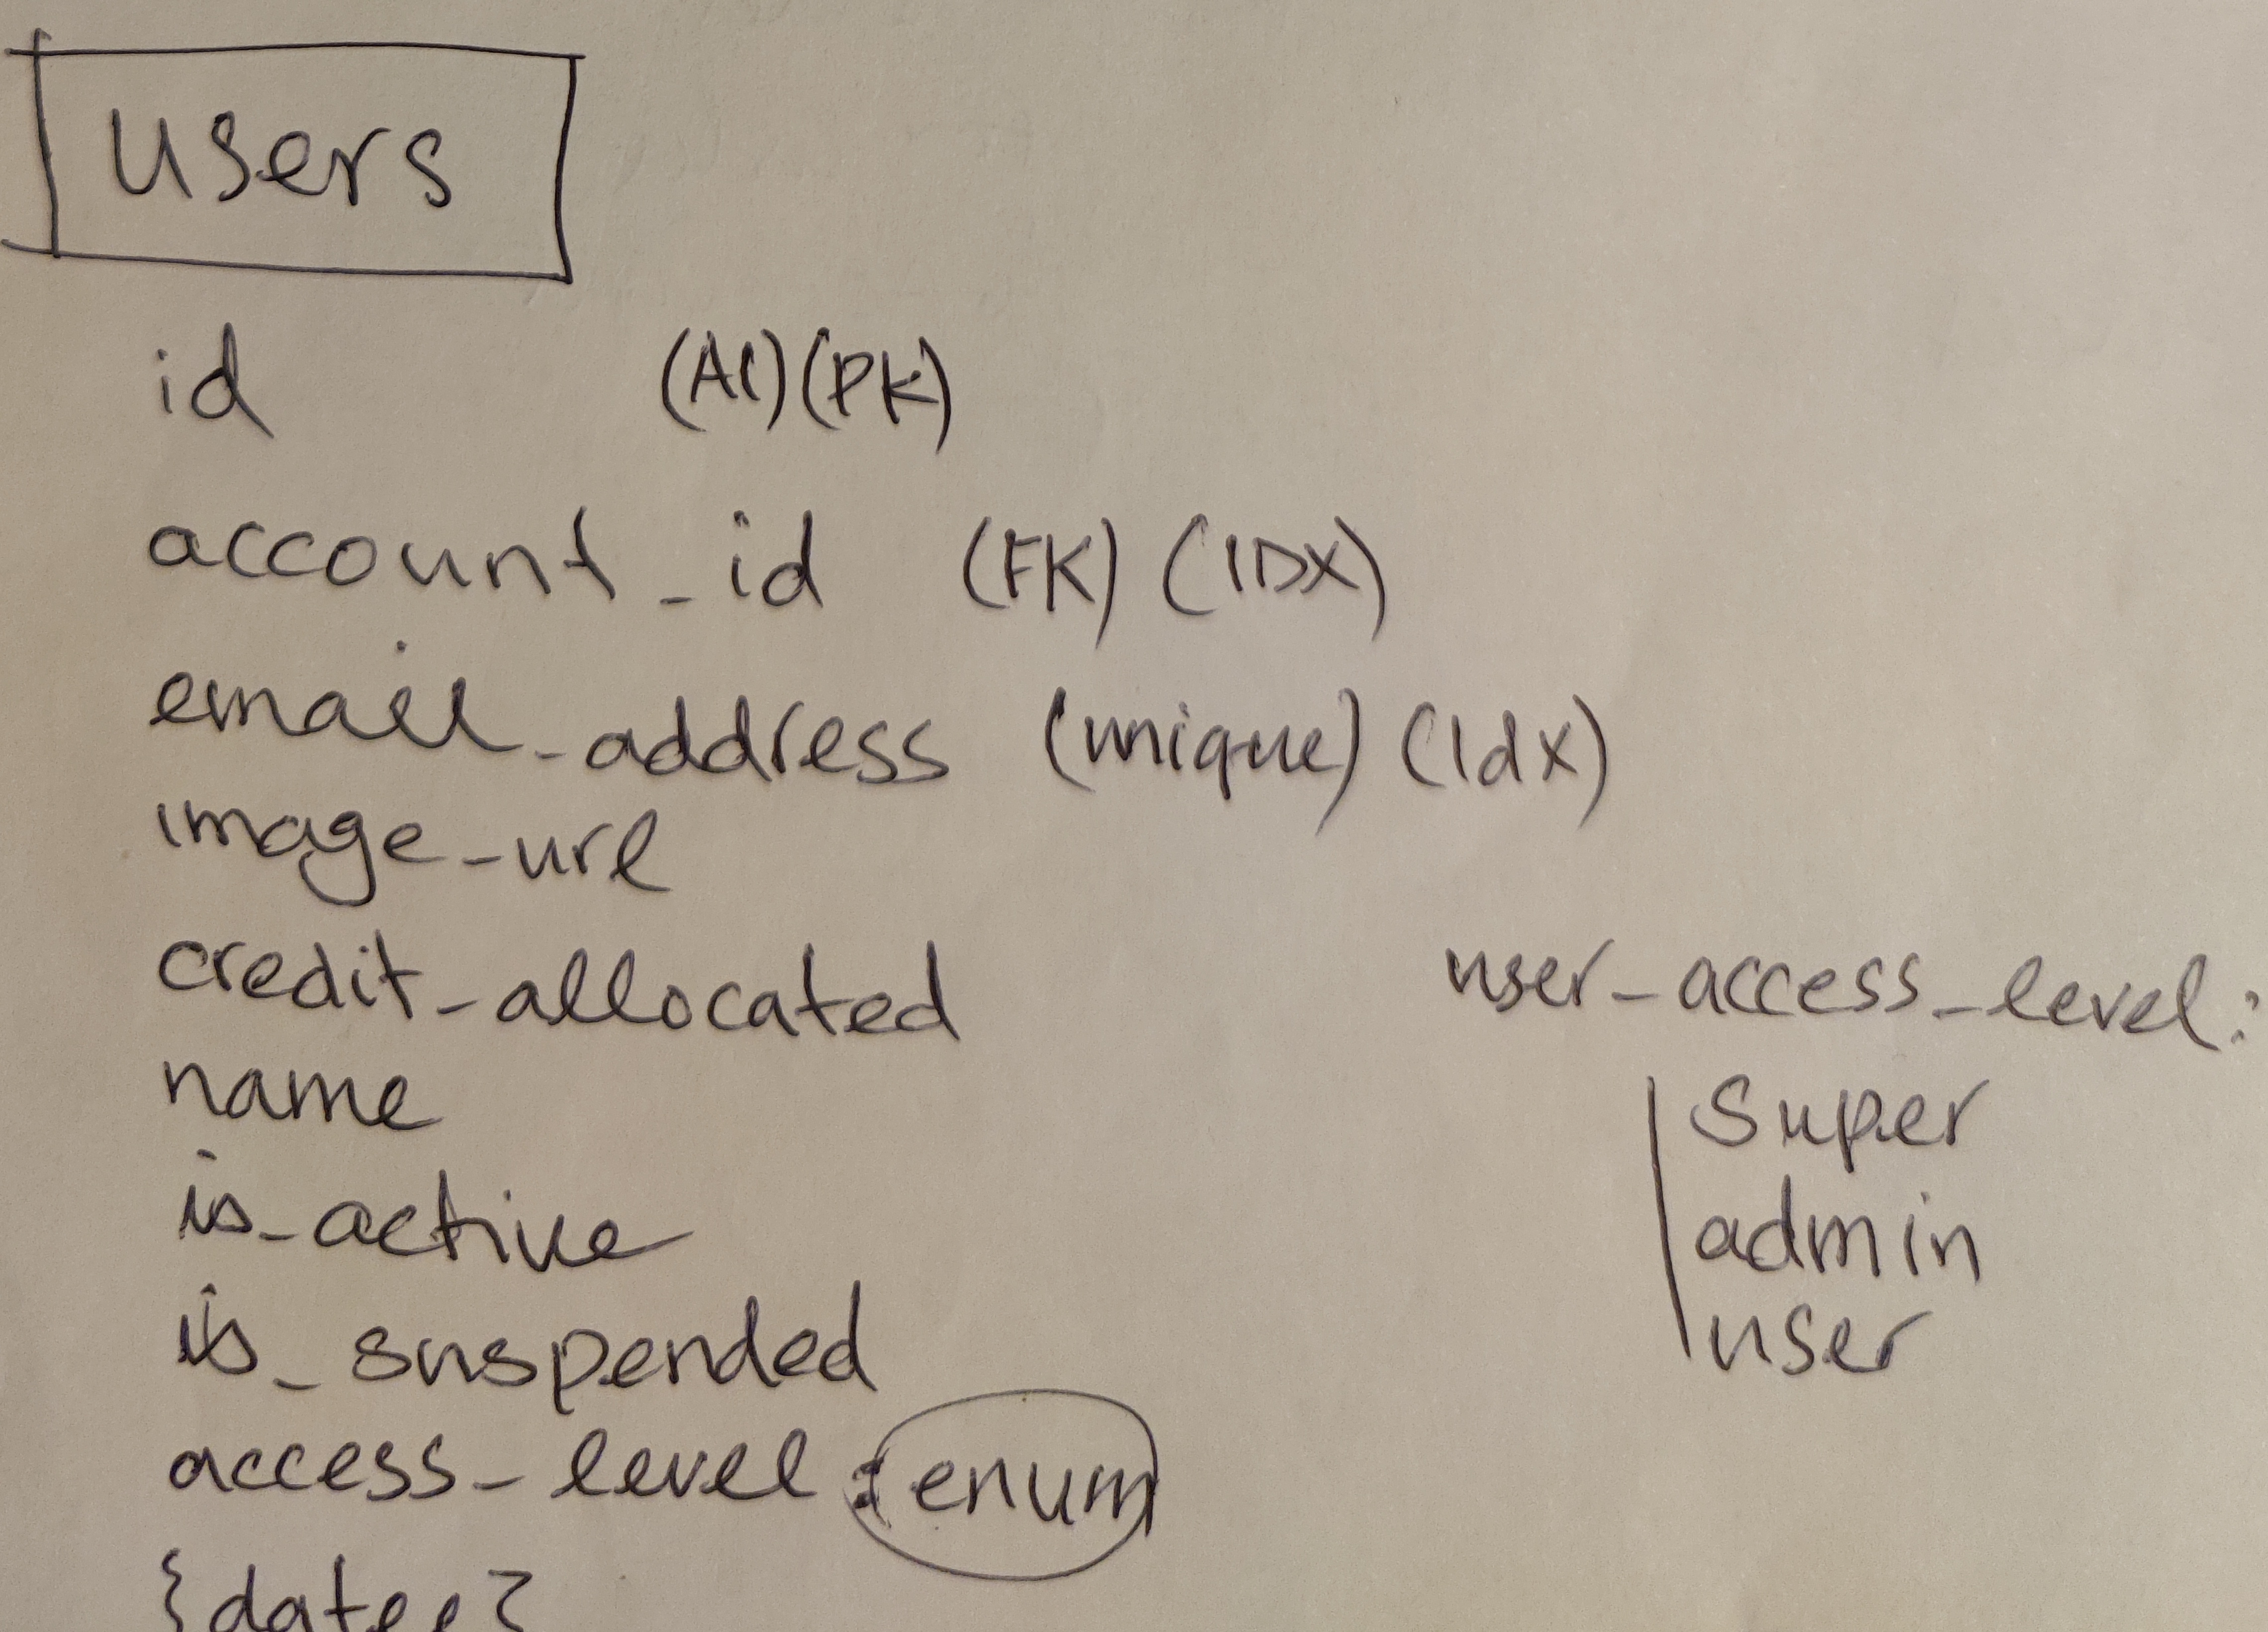 users
id (AI)(PK)
account_id (FK) (IDX)
email_address (unique) (Idx)
image_url
credit_allocated
name
is_active
is_suspended
access_level : enum
{dates}
user_access_level:
super
admin
user